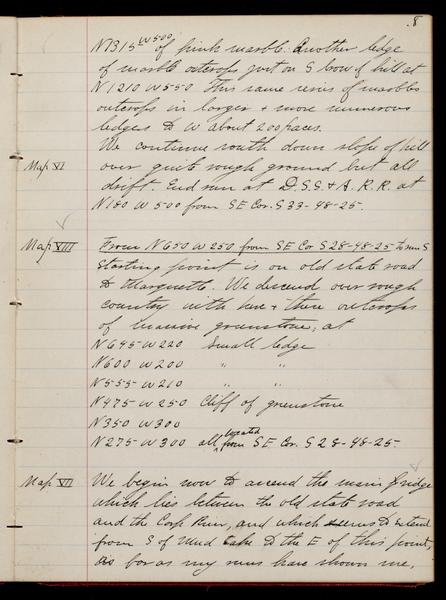 8
N1315 W500 of pink marble. Another ledge
of marble outcrops just on S brow of hill at
N1210 W550. This same series of marbles
outcrops in larger + more numerous
ledges to W about 200 paces.
We continue south down slope of hill
Map VI over quite rough ground but all
drift. End run at D.S.S. & A. R.R. at
N180 W500 from SE Cor. S33-48-25.
Map VIII From N650 W250 from SE Cor S28-48-25 to run S
Starting point is on old state road
to Marquette. We descend over rough
country with here + there outcrops
of massive greenstone; at
N695-W220 Small ledge
N600 W200 " "
N555-W210 " "
N475-W250 Cliff of greenstone
N350 W300
N275-W300 all located from SE Cor. S28-48-25
Map VII We begin now to ascend the main ridge
which lies between the old state road
and the Carp River, and which seems to extend
from S of Mud Lake to the E of this point,
as far as my runs have shown me.